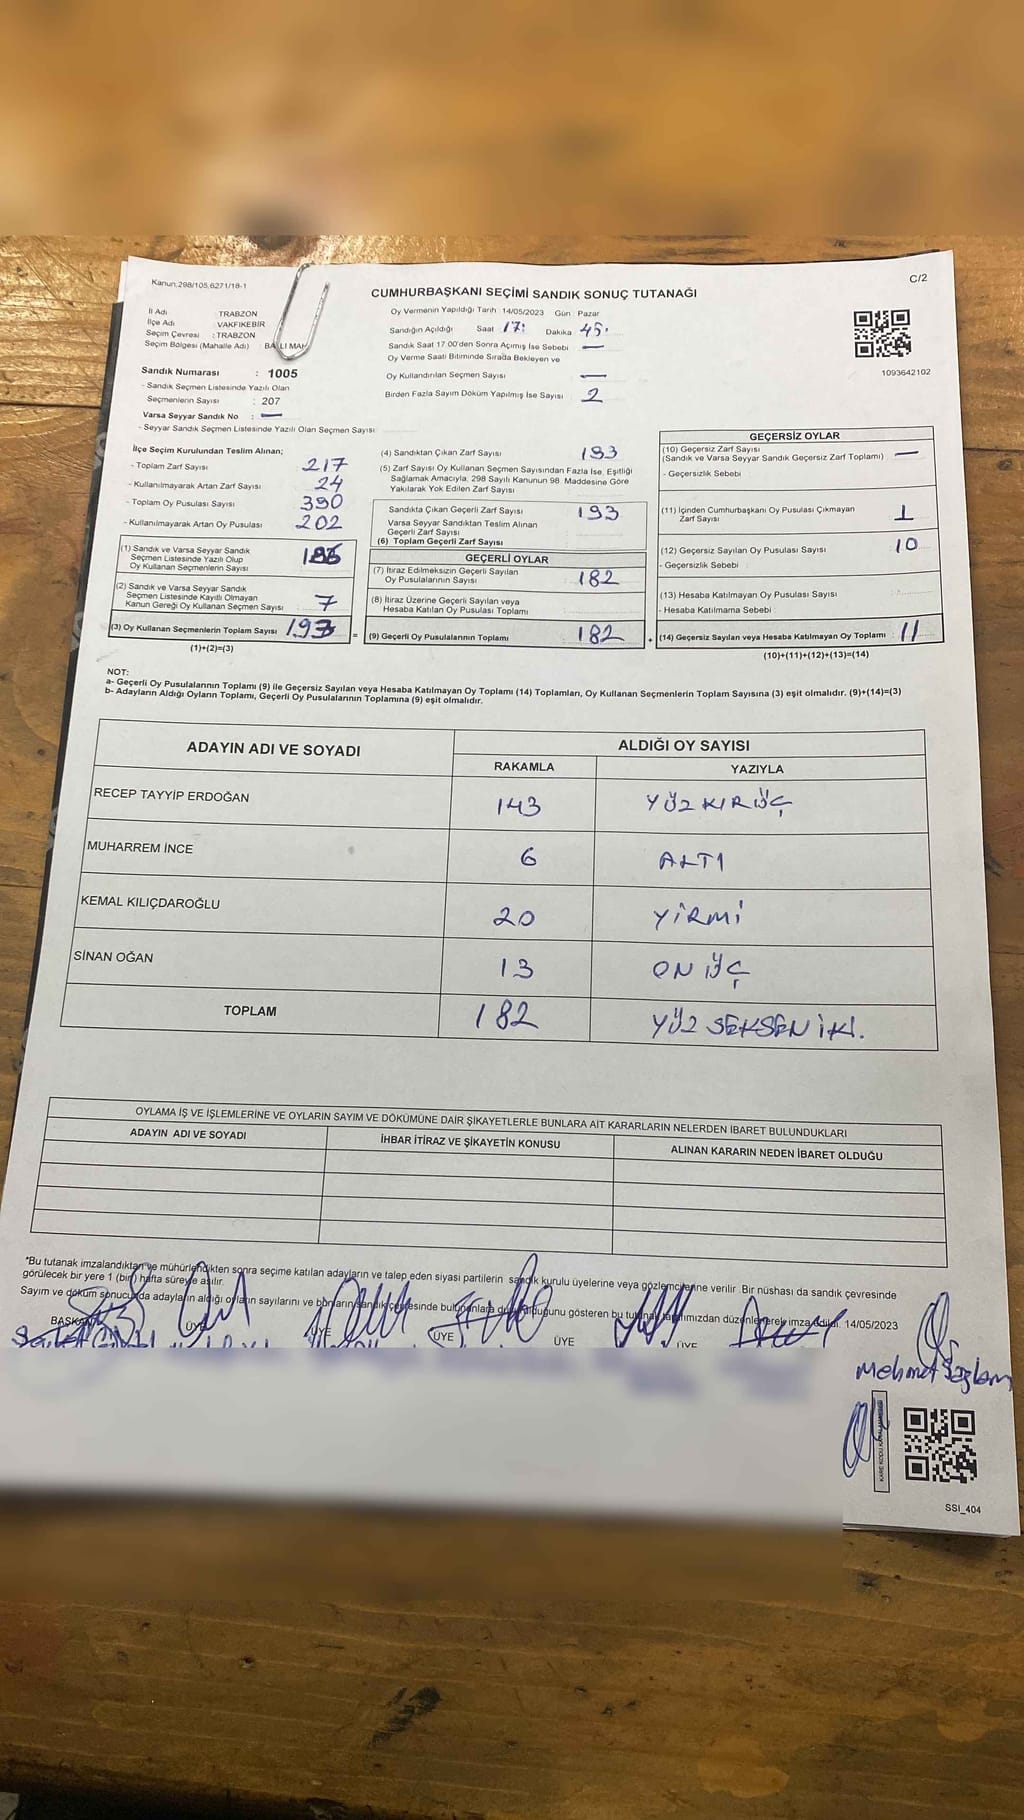 Kanun.298/105,6271/18-1
C/2
CUMHURBAŞKANI SEÇİMİ SANDIK SONUÇ TUTANAĞI
İl Adı : TRABZON
İlçe Adı : VAKFIKEBİR
Seçim Çevresi : TRABZON
Seçim Bölgesi (Mahalle Adı) :
Sandık Numarası : 1005
- Sandık Seçmen Listesinde Yazılı Olan
Seçmenlerin Sayısı : 207
Varsa Seyyar Sandık No : —
- Seyyar Sandık Seçmen Listesinde Yazılı Olan Seçmen Sayısı
Oy Vermenin Yapıldığı Tarih 14/05/2023 Gün : Pazar
Sandığın Açıldığı Saat 17: Dakika 45.
Sandık Saat 17.00'den Sonra Açımış İse Sebebi —
Oy Verme Saati Bitiminde Sırada Bekleyen ve
Oy Kullandırılan Seçmen Sayısı —
Birden Fazla Sayım Döküm Yapılmış İse Sayısı 2
1093642102
İlçe Seçim Kurulundan Teslim Alınan;
- Toplam Zarf Sayısı 217
- Kullanılmayarak Artan Zarf Sayısı 24
- Toplam Oy Pusulası Sayısı 390
- Kullanılmayarak Artan Oy Pusulası 202
(1) Sandık ve Varsa Seyyar Sandık
Seçmen Listesinde Yazılı Olup
Oy Kullanan Seçmenlerin Sayısı
(2) Sandık ve Varsa Seyyar Sandık
Seçmen Listesinde Kayıtlı Olmayan
Kanun Gereği Oy Kullanan Seçmen Sayısı 7
(3) Oy Kullanan Seçmenlerin Toplam Sayısı 193
(1)+(2)=(3)
(4) Sandıktan Çıkan Zarf Sayısı 193
(5) Zarf Sayısı Oy Kullanan Seçmen Sayısından Fazla İse, Eşitliği
Sağlamak Amacıyla, 298 Sayılı Kanunun 98. Maddesine Göre
Yakılarak Yok Edilen Zarf Sayısı
Sandıkta Çıkan Geçerli Zarf Sayısı 193
Varsa Seyyar Sandıktan Teslim Alınan
Geçerli Zarf Sayısı
(6) Toplam Geçerli Zarf Sayısı
GEÇERLİ OYLAR
(7) İtiraz Edilmeksizin Geçerli Sayılan
Oy Pusulalarının Sayısı 182
(8) İtiraz Üzerine Geçerli Sayılan veya
Hesaba Katılan Oy Pusulası Toplamı
= (9) Geçerli Oy Pusulalarının Toplamı 182
GEÇERSİZ OYLAR
(10) Geçersiz Zarf Sayısı
(Sandık ve Varsa Seyyar Sandık Geçersiz Zarf Toplamı) —
- Geçersizlik Sebebi
(11) İçinden Cumhurbaşkanı Oy Pusulası Çıkmayan
Zarf Sayısı 1
(12) Geçersiz Sayılan Oy Pusulası Sayısı 10
- Geçersizlik Sebebi
(13) Hesaba Katılmayan Oy Pusulası Sayısı
- Hesaba Katılmama Sebebi
+ (14) Geçersiz Sayılan veya Hesaba Katılmayan Oy Toplamı 11
(10)+(11)+(12)+(13)=(14)
NOT:
a- Geçerli Oy Pusulalarının Toplamı (9) ile Geçersiz Sayılan veya Hesaba Katılmayan Oy Toplamı (14) Toplamları, Oy Kullanan Seçmenlerin Toplam Sayısına (3) eşit olmalıdır. (9)+(14)=(3)
b- Adayların Aldığı Oyların Toplamı, Geçerli Oy Pusulalarının Toplamına (9) eşit olmalıdır.
ADAYIN ADI VE SOYADI ALDIĞI OY SAYISI
RAKAMLA YAZIYLA
RECEP TAYYİP ERDOĞAN 143 YÜZ KIRÜÇ
MUHARREM İNCE 6 ALTI
KEMAL KILIÇDAROĞLU 20 YİRMİ
SİNAN OĞAN 13 ON ÜÇ
TOPLAM 182 YÜZ SEKSEN İKİ.
OYLAMA İŞ VE İŞLEMLERİNE VE OYLARIN SAYIM VE DÖKÜMÜNE DAİR ŞİKAYETLERLE BUNLARA AİT KARARLARIN NELERDEN İBARET BULUNDUKLARI
ADAYIN ADI VE SOYADI İHBAR İTİRAZ VE ŞİKAYETİN KONUSU ALINAN KARARIN NEDEN İBARET OLDUĞU
*Bu tutanak imzalandıktan ve mühürlendikten sonra seçime katılan adayların ve talep eden siyasi partilerin sandık kurulu üyelerine veya gözlemcilerine verilir. Bir nüshası da sandık çevresinde
görülecek bir yere 1 (bir) hafta süreyle asılır.
Sayım ve döküm sonucunda adayların aldığı oyların sayılarını ve bunların sandık çevresinde bulunanlara duyurulduğunu gösteren bu tutanak tarafımızdan düzenlenerek imza edildi. 14/05/2023
BAŞKAN ÜYE ÜYE ÜYE ÜYE ÜYE
Mehmet Sağlam
SSI_404